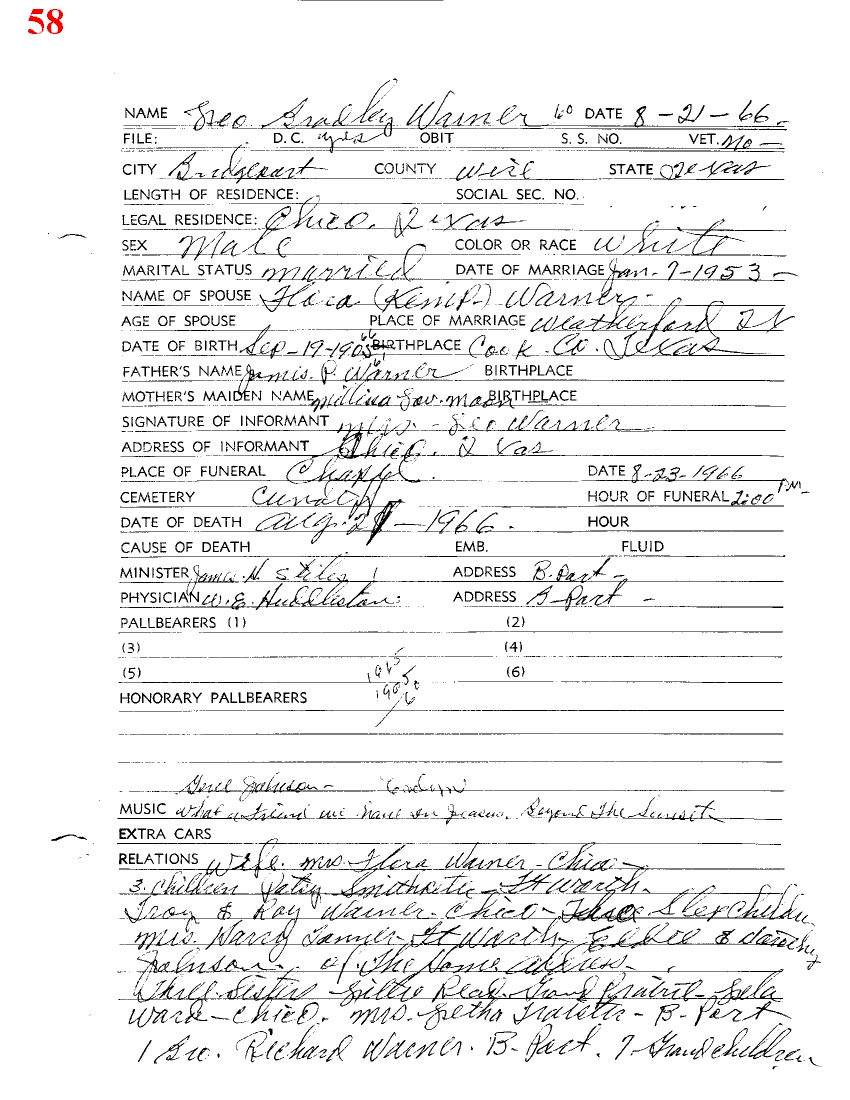 58
NAME Geo. Bradley Warner 60 DATE 8-21-66.
FILE: D.C. yes OBIT S. S. NO. VET. no-
CITY Bridgeport COUNTY Wise STATE Texas
LENGTH OF RESIDENCE: SOCIAL SEC. NO.
LEGAL RESIDENCE: Chico, Texas
SEX Male COLOR OR RACE White
MARITAL STATUS married DATE OF MARRIAGE Jan-7-1953-
NAME OF SPOUSE Flora (Kemp-) Warner-
AGE OF SPOUSE PLACE OF MARRIAGE Weatherford TX
DATE OF BIRTH Sep-19-1905 BIRTHPLACE Cook. Co. Texas
FATHER'S NAME James. P. Warner BIRTHPLACE
MOTHER'S MAIDEN NAME BIRTHPLACE
SIGNATURE OF INFORMANT Mrs. Geo Warner
ADDRESS OF INFORMANT Chico.
PLACE OF FUNERAL Chappel. DATE 8-23-1966
CEMETERY HOUR OF FUNERAL 2:00 PM-
DATE OF DEATH Aug. -1966. HOUR
CAUSE OF DEATH EMB. FLUID
MINISTER James. H. Stiles ADDRESS B. Port-
PHYSICIAN W. E. Huddleston: ADDRESS B-Port -
PALLBEARERS (1) (2)
(3) (4)
(5) (6)
HONORARY PALLBEARERS
Johnson- Evelyn
MUSIC What a Friend we have in Jeasus. Beyond The Sunset
EXTRA CARS
RELATIONS Wife. Mrs. Flora Warner-Chico-
3. Children Patsy - Ft Worth-
Troy & Roy Warner-Chico- Step Children
Mrs. Harry Tanner-Ft Worth- & Dorothy
Johnson. of The Home address-
Three Sisters- Grand Prairie-
Ward-Chico. Mrs. - B-Port
1 Bro. Richard Warner. B-Port. 7-Grandchildren